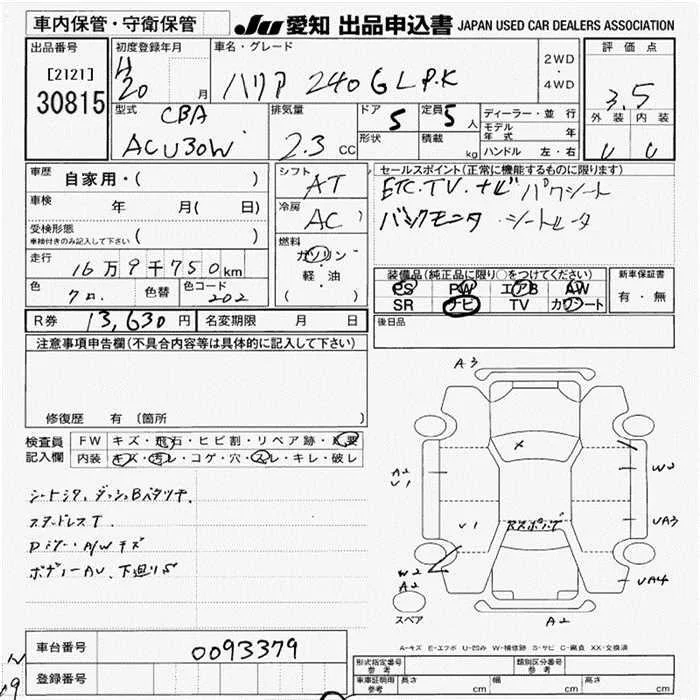 車内保管・守衛保管
JU 愛知 出品申込書 JAPAN USED CAR DEALERS ASSOCIATION
出品番号
[2121]
30815
初度登録年月
H20 月
車名・グレード
ハリア 240G L P.K
2WD
・
4WD
評価点
3.5
外装 内装
型式
CBA
ACU30W
排気量
2.3 CC
ドア
5
定員
5 人
形状
積載
kg
ディーラー・並行
モデル年式 年
ハンドル 左・右
車歴
自家用・( )
車検
年 月( 日)
受検形態
車検付きのみ記入して下さい ( )
走行
16万9千750km
色
クロ
色替
色コード
202
シフト
AT
冷房
AC
燃料
ガソリン
・
軽・油
( )
セールスポイント(正常に機能するものに限ります)
ETC.TV.ナビ パワシート
バックモニタ シートヒータ
装備品(純正品に限り○をつけてください)
PS PW エアB AW
SR ナビ TV カワシート
新車保証書
有・無
後日品
R券 13,630円 名変期限 月 日
注意事項申告欄(不具合内容等は具体的に記入して下さい)
修復歴 有 〔箇所 〕
検査員
記入欄
FW キズ・飛石・ヒビ割・リペア跡・×要
内装 キズ・汚レ・コゲ・穴・スレ・キレ・破レ
シートシワ、ダッシュBベタツキ
スタッドレスT.
A/Wキズ
ボディーAU、下廻りS
A3
A2
U1
W2
UA3
UA4
U1
Rスポイラ
W2
A2
スペア
A2
A-キズ E-エクボ U-凹み W-補修跡 S-サビ C-腐食 XX-交換済
車台番号 0093379
登録番号
形式指定番号
参考
類別区分番号
参考
車庫証明用
参考
長さ cm 幅 cm 高さ cm